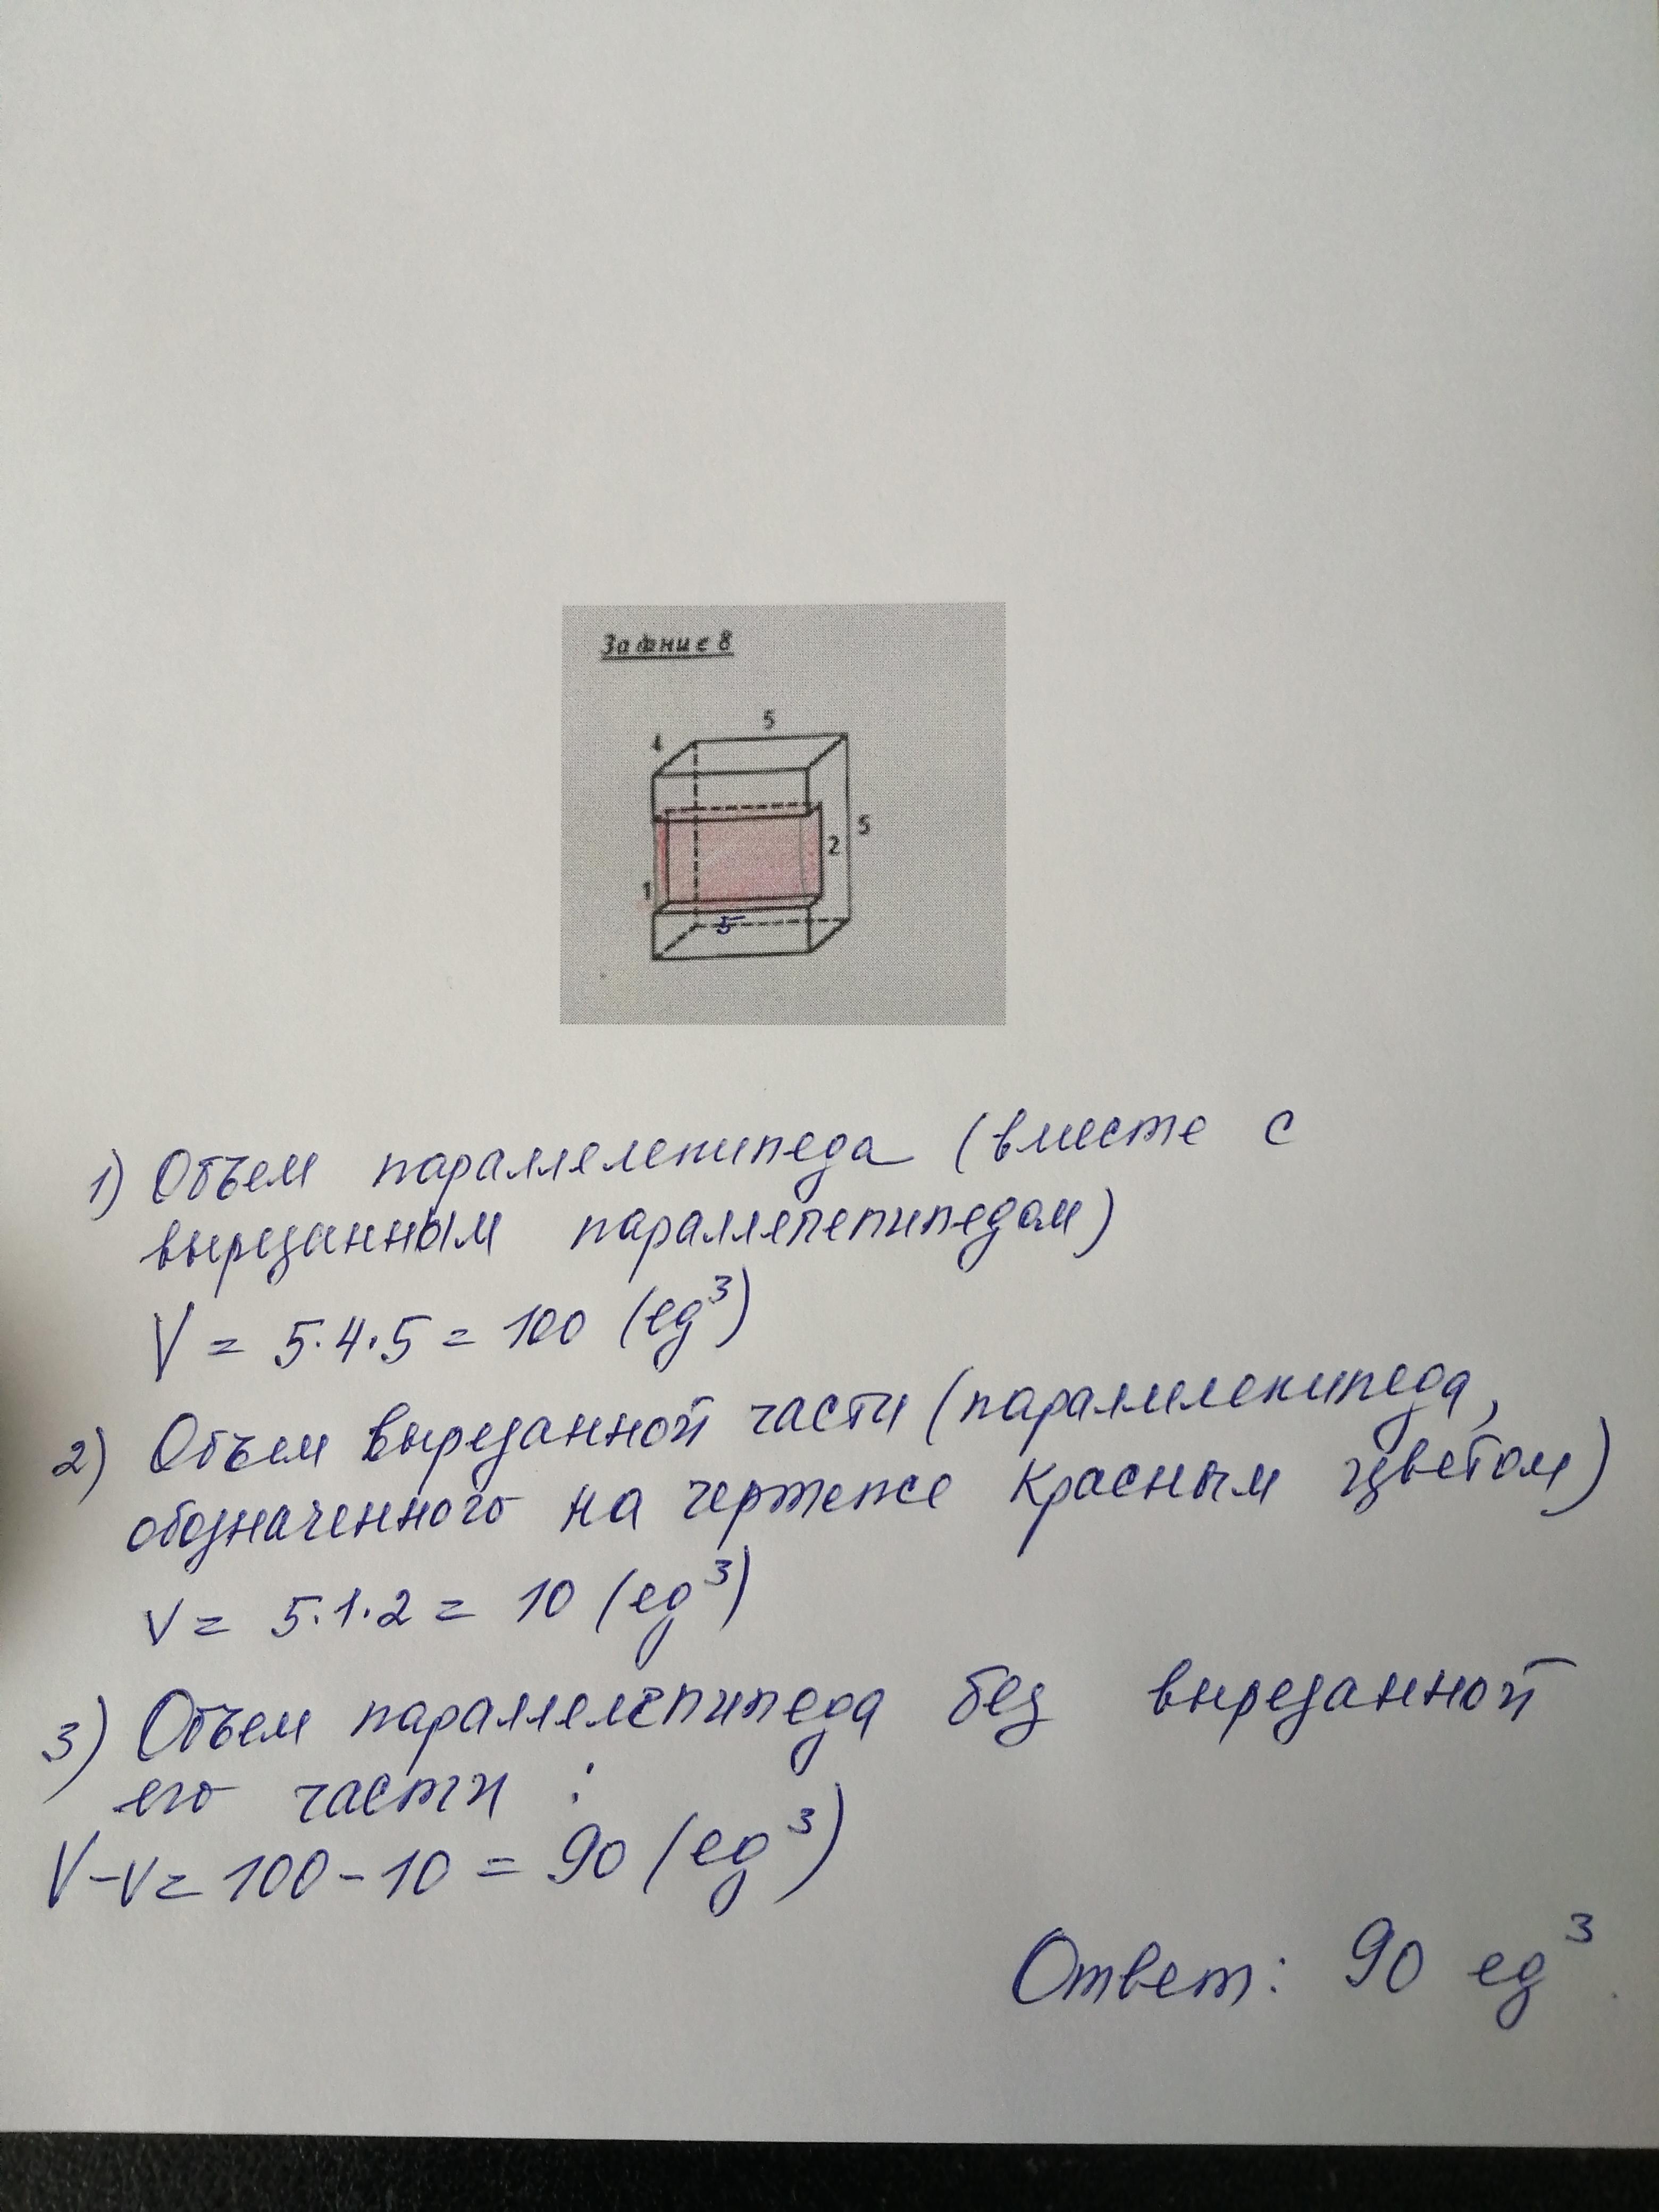 Задание 8
5
4
5
2
1
5
1) Объем параллелепипеда (вместе с
вырезанным параллелепипедом)
V = 5·4·5 = 100 (ед³)
2) Объем вырезанной части (параллелепипеда,
обозначенного на чертеже красным цветом)
v = 5·1·2 = 10 (ед³)
3) Объем параллелепипеда без вырезанной
его части :
V-v = 100-10 = 90 (ед³)
Ответ: 90 ед³.